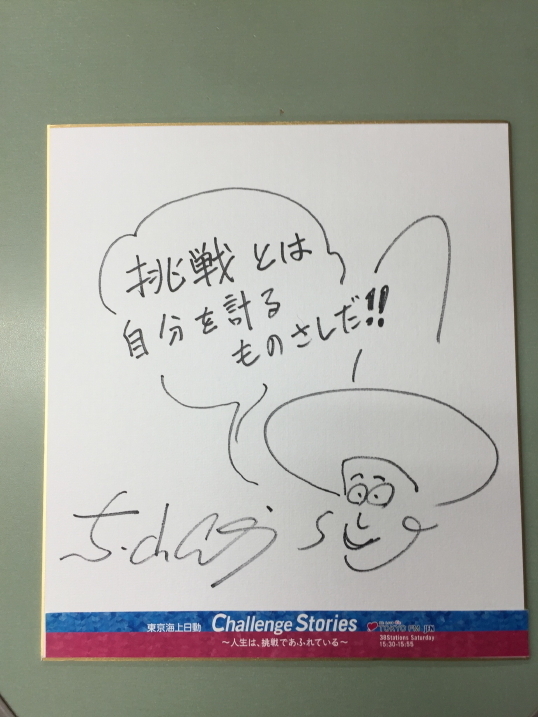 挑戦とは
自分を計る
ものさしだ!!
東京海上日動 Challenge Stories
～人生は、挑戦であふれている～
TOKYO FM
38Stations Saturday
15:30-15:55